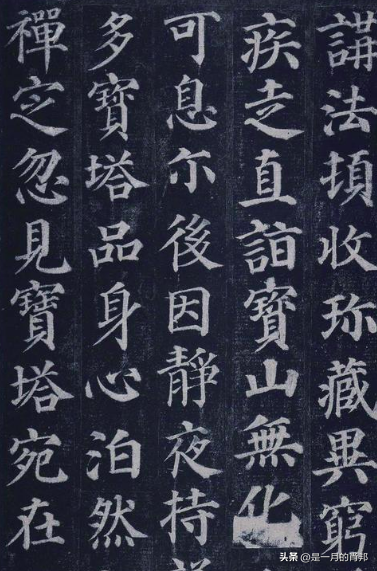 講法頓收珎藏異窮
疾走直詣寳山無化
可息尒後因靜夜持
多寳塔品身心泊然
禪定忽見寳塔宛在
头条 @是一月的肖邦